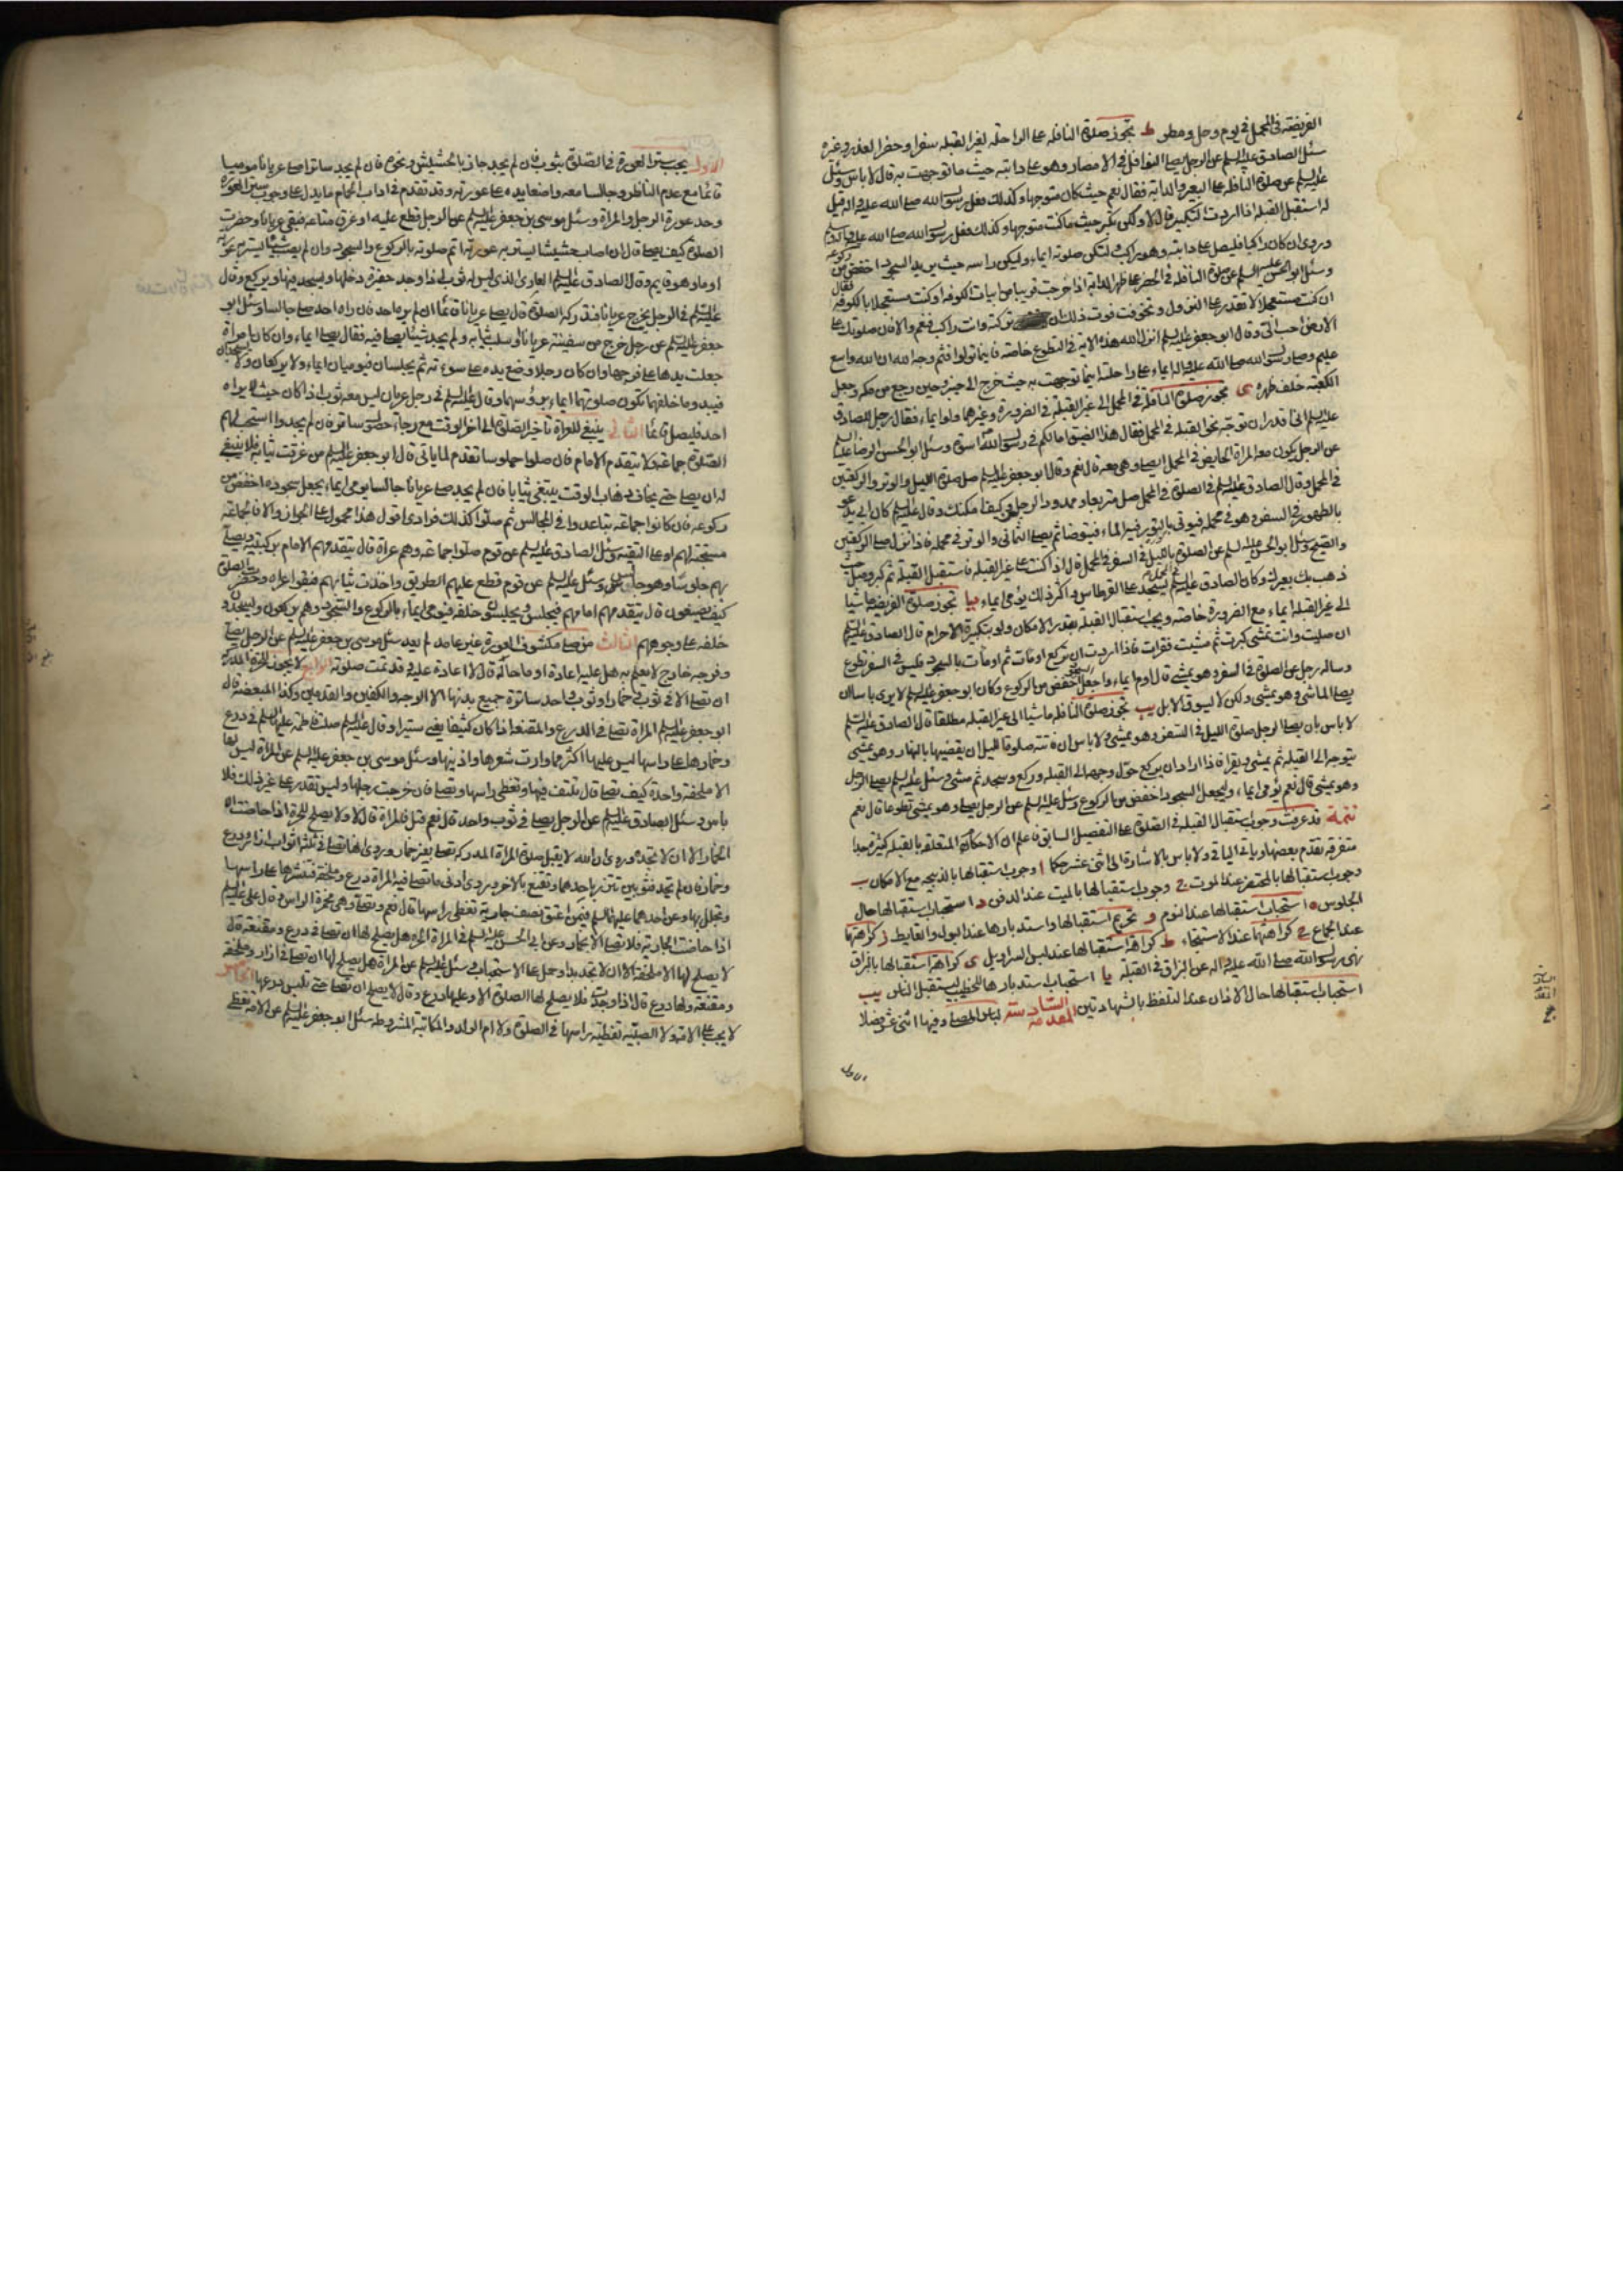 الفريضة في المحمل في يوم وحل ومطر ط تجوز صلوة النافلة على الراحلة لغير القبلة سفرا وحضرا لعذر وغيره
سئل الصادق عليه السلم عن الرجل يصلي النوافل في الامصار وهو على دابته حيث ما توجهت به قال لا باس وسئل
عليه السلم عن صلوة النافلة على البعير والدابة فقال نعم حيث كان متوجها وكذلك فعل رسول الله صلى الله عليه واله قيل
له استقبل القبلة اذا اردت التكبير قال لا ولكن تكبر حيث ما كنت متوجها وكذلك فعل رسول الله صلى الله عليه واله
وروي ان كان راكبا فليصل على دابته وهو راكب ولتكن صلوته ايماء وليكن راسه حيث يريد السجود اخفض من ركوعه
وسئل ابو الحسن عليه السلم عن صلوة النافلة في الحضر على ظهر الدابة اذا خرجت قريبا من ابيات الكوفة او كنت مستعجلا بالكوفة فقال
ان كنت مستعجلا لا تقدر على النزول وتخوفت فوت ذلك ان تركته وانت راكب فنعم والا فان صلوتك على
الارض احب الي وقال ابو جعفر عليه السلم انزل الله هذه الاية في التطوع خاصة فاينما تولوا فثم وجه الله ان الله واسع
عليم وصلى رسول الله صلى الله عليه واله ايماء على راحلته اينما توجهت به حيث خرج الى خيبر وحين رجع من مكة وجعل
الكعبة خلف ظهره ى تجوز صلوة النافلة في المحمل الى غير القبلة في الضرورة وغيرها ولو ايماء فقال رجل للصادق
عليه السلم اني اقدر ان توجه نحو القبلة في المحمل فقال هذا الضيق اما لكم في رسول الله اسوة وسئل ابو الحسن الرضا عليه السلم
عن الرجل يكون معه المراة الحايض في المحمل ايصلي وهي معه قال نعم وقال ابو جعفر عليه السلم صل صلوة الليل والوتر والركعتين
في المحمل وقال الصادق عليه السلم في الصلوة في المحمل صل متربعا وممدود الرجلين وكيف امكنك وقال عليه السلم كان ابي يدعو
بالطهور في السفر وهو في محمله فيؤتى بالتور فيه الماء فيتوضا ثم يصلي الثماني والوتر في محمله فاذا نزل صلى الركعتين
والصبح وسئل ابو الحسن عليه السلم عن الصلوة بالليل في السفر في المحمل قال اذا كنت على غير القبلة فاستقبل القبلة ثم كبر وصل حيث
ذهب بك بعيرك وكان الصادق عليه السلم يسجد على القرطاس واكثر ذلك يومي ايماء يا تجوز صلوة الفريضة ماشيا
الى غير القبلة ايماء مع الضرورة خاصة ويجب استقبال القبلة بقدر الامكان ولو بتكبيرة الاحرام قال الصادق عليه السلم
ان صليت وانت تمشي كبرت ثم مشيت فقرات فاذا اردت ان تركع اومات ثم اومات بالسجود فليس في السفر تطوع
وساله رجل عن الصلوة في السفر وهو يمشي قال اوم ايماء واجعل السجود اخفض من الركوع وكان ابو جعفر عليه السلم لا يرى باسا ان
يصلي الماشي وهو يمشي ولكن لا يسوق الابل يب تجوز صلوة النافلة ماشيا الى غير القبلة مطلقا قال الصادق عليه السلم
لا باس بان يصلي الرجل صلوة الليل في السفر وهو يمشي ولا باس ان فاتته صلوة الليل ان يقضيها بالنهار وهو يمشي
يتوجه الى القبلة ثم يمشي ويقرا فاذا اراد ان يركع حول وجهه الى القبلة وركع وسجد ثم مشى وسئل عليه السلم يصلي الرجل
وهو يمشي قال نعم يؤمي ايماء وليجعل السجود اخفض من الركوع وسئل عليه السلم عن الرجل يصلي وهو يمشي تطوعا قال نعم
تتمة قد عرفت وجوب استقبال القبلة في الصلوة على التفصيل السابق فاعلم ان الاحكام المتعلقة بالقبلة كثيرة جدا
متفرقة تقدم بعضها وياتي الباقي ولا باس بالاشارة الى اثنى عشر حكما ا وجوب استقبالها بالذبيحة مع الامكان ب
وجوب استقبالها بالمحتضر عند الموت ج وجوب استقبالها بالميت عند الدفن د استحباب استقبالها حال
الجلوس ه استحباب استقبالها عند النوم و تحريم استقبالها واستدبارها عند البول والغايط ز كراهتها
عند الجماع ح كراهتها عند الاستنجاء ط كراهة استقبالها عند لبس السراويل ى كراهة استقبالها بالبزاق
نهى رسول الله صلى الله عليه واله عن البزاق في القبلة يا استحباب استدبارها للخطيب ليستقبل الناس يب
استحباب استقبالها حال الاذان عند التلفظ بالشهادتين المقدمة السادسة لباس المصلي وفيها اثنى عشر فصلا
الاول
الاول يجب ستر العورة في الصلوة بثوب فان لم يجد جاز بالحشيش ونحوه فان لم يجد ساترا صلى عريانا موميا
قائما مع عدم الناظر وجالسا معه واضعا يده على عورته وقد تقدم في اداب الحمام ما يدل على وجوب ستر العورة
وحد عورة الرجل والمراة وسئل موسى بن جعفر عليه السلم عن الرجل قطع عليه او غرق متاعه فبقي عريانا وحضرت
الصلوة كيف يصلي قال ان اصاب حشيشا يستر به عورته اتم صلوته بالركوع والسجود وان لم يصب شيئا يستر به عورته
اوما وهو قايم وقال الصادق عليه السلم العاري الذي ليس له ثوب اذا وجد حفيرة دخلها ويسجد فيها ويركع وقال
عليه السلم في الرجل يخرج عريانا فتدركه الصلوة قال يصلي عريانا قائما ان لم يره احد فان راه احد صلى جالسا وسئل ابو
جعفر عليه السلم عن رجل خرج من سفينة عريانا او سلب ثيابه ولم يجد شيئا يصلي فيه فقال يصلي ايماء وان كان امراة
جعلت يدها على فرجها وان كان رجلا وضع يده على سوءته ثم يجلسان فيوميان ايماء ولا يركعان ولا يسجدان
فيبدو ما خلفهما تكون صلوتهما ايماء برؤسهما وقال عليه السلم في رجل عريان ليس معه ثوب اذا كان حيث لا يراه
احد فليصل قائما الثاني ينبغي للعراة تاخير الصلوة الى اخر الوقت مع رجاء حصول ساتر فان لم يجدوا استحب لهم
الصلوة جماعة ولا يتقدم الامام فان صلوا جلوسا تقدم لما ياتي قال ابو جعفر عليه السلم من غرقت ثيابه فلا ينبغي
له ان يصلي حتى يخاف ذهاب الوقت يبتغي ثيابا فان لم يجد صلى عريانا جالسا يومي ايماء يجعل سجوده اخفض من
ركوعه فان كانوا جماعة تباعدوا في المجالس ثم صلوا كذلك فرادى اقول هذا محمول على الجواز والا فالجماعة
مستحبة لهم او على التقية وسئل الصادق عليه السلم عن قوم صلوا جماعة وهم عراة قال يتقدمهم الامام بركبتيه ويصلي
بهم جلوسا وهو جالس وسئل عليه السلم عن قوم قطع عليهم الطريق واخذت ثيابهم فبقوا عراة وحضرت الصلوة
كيف يصنعون قال يتقدمهم امامهم فيجلس ويجلسون خلفه فيومي ايماء بالركوع والسجود وهم يركعون ويسجدون
خلفه على وجوههم الثالث من صلى مكشوف العورة غير عامد لم يعد سئل موسى بن جعفر عليه السلم عن الرجل يصلي
وفرجه خارج لا يعلم به هل عليه اعادة او ما حاله قال لا اعادة عليه وقد تمت صلوته الرابع لا يجوز للمراة الحرة
ان تصلي الا في ثوب وخمار او ثوب واحد ساترة جميع بدنها الا الوجه والكفين والقدمين وكذا المبعضة قال
ابو جعفر عليه السلم المراة تصلي في الدرع والمقنعة اذا كان كثيفا يعني ستيرا وقال عليه السلم صلت فاطمة عليها السلم في درع
وخمارها على راسها ليس عليها اكثر مما وارت شعرها واذنيها وسئل موسى بن جعفر عليه السلم عن المراة ليس لها
الا ملحفة واحدة كيف تصلي قال تلتف فيها وتغطي راسها وتصلي فان خرجت رجلها وليس تقدر على غير ذلك فلا
باس وسئل الصادق عليه السلم عن الرجل يصلي في ثوب واحد قال نعم قيل فالمراة قال لا ولا يصلح للحرة اذا حاضت الا
الخمار الا ان لا تجده وروي ان الله لا يقبل صلوة المراة المدركة تصلي بغير خمار وروي انها تصلي في ثلثة اثواب ازار ودرع
وخمار فان لم تجد فثوبين تتزر باحدهما وتقنع بالاخر وروي ادنى ما تصلي فيه المراة درع وملحفة فتنشرها على راسها
وتجلل بها وعن احدهما عليهما السلم فيمن اعتق نصف جارية تغطي راسها قال نعم وتصلي وهي مخمرة الراس وقال علي عليه السلم
اذا حاضت الجارية فلا تصلي الا بخمار وعن ابي الحسن عليه السلم في المراة الحرة هل يصلح لها ان تصلي في درع ومقنعة قال
لا يصلح لها الا ملحفة الا ان لا تجد بدا وحمل على الاستحباب وسئل عليه السلم عن المراة هل يصلح لها ان تصلي في ازار وملحفة
ومقنعة ولها درع قال اذا وجدت فلا يصلح لها الصلوة الا وعليها درع وقال لا يصلح ان تصلي حتى تلبس درعها الخامس
لا يجب على الامة ولا الصبية تغطية راسها في الصلوة ولا ام الولد والمكاتبة المشروطة سئل ابو جعفر عليه السلم عن الامة تغطي